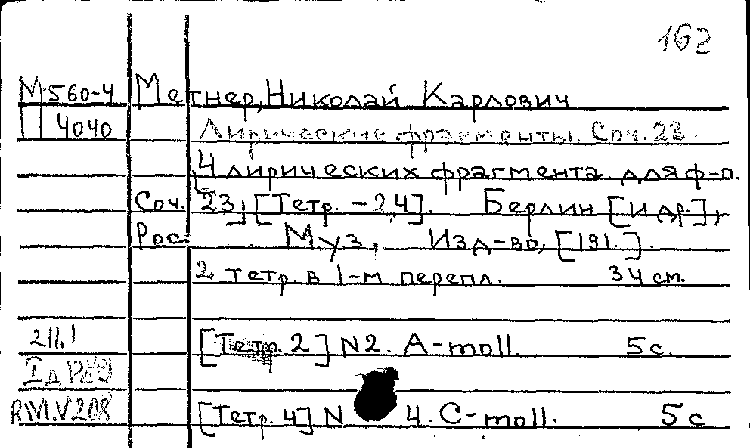 162
М560-4 Метнер, Николай Карлович
П 4040 Лирические фрагменты. Соч. 23.
4 лирических фрагмента для ф-п.
Соч. 23, [Тетр. -2,4]. Берлин [и др.],
Рос. Муз. Изд-во, [191.].
2 тетр. в 1-м перепл. 34 см.
211.1 [Тетр. 2] N2. A-moll. 5 с.
[Тетр. 4] N 4. C-moll. 5 с